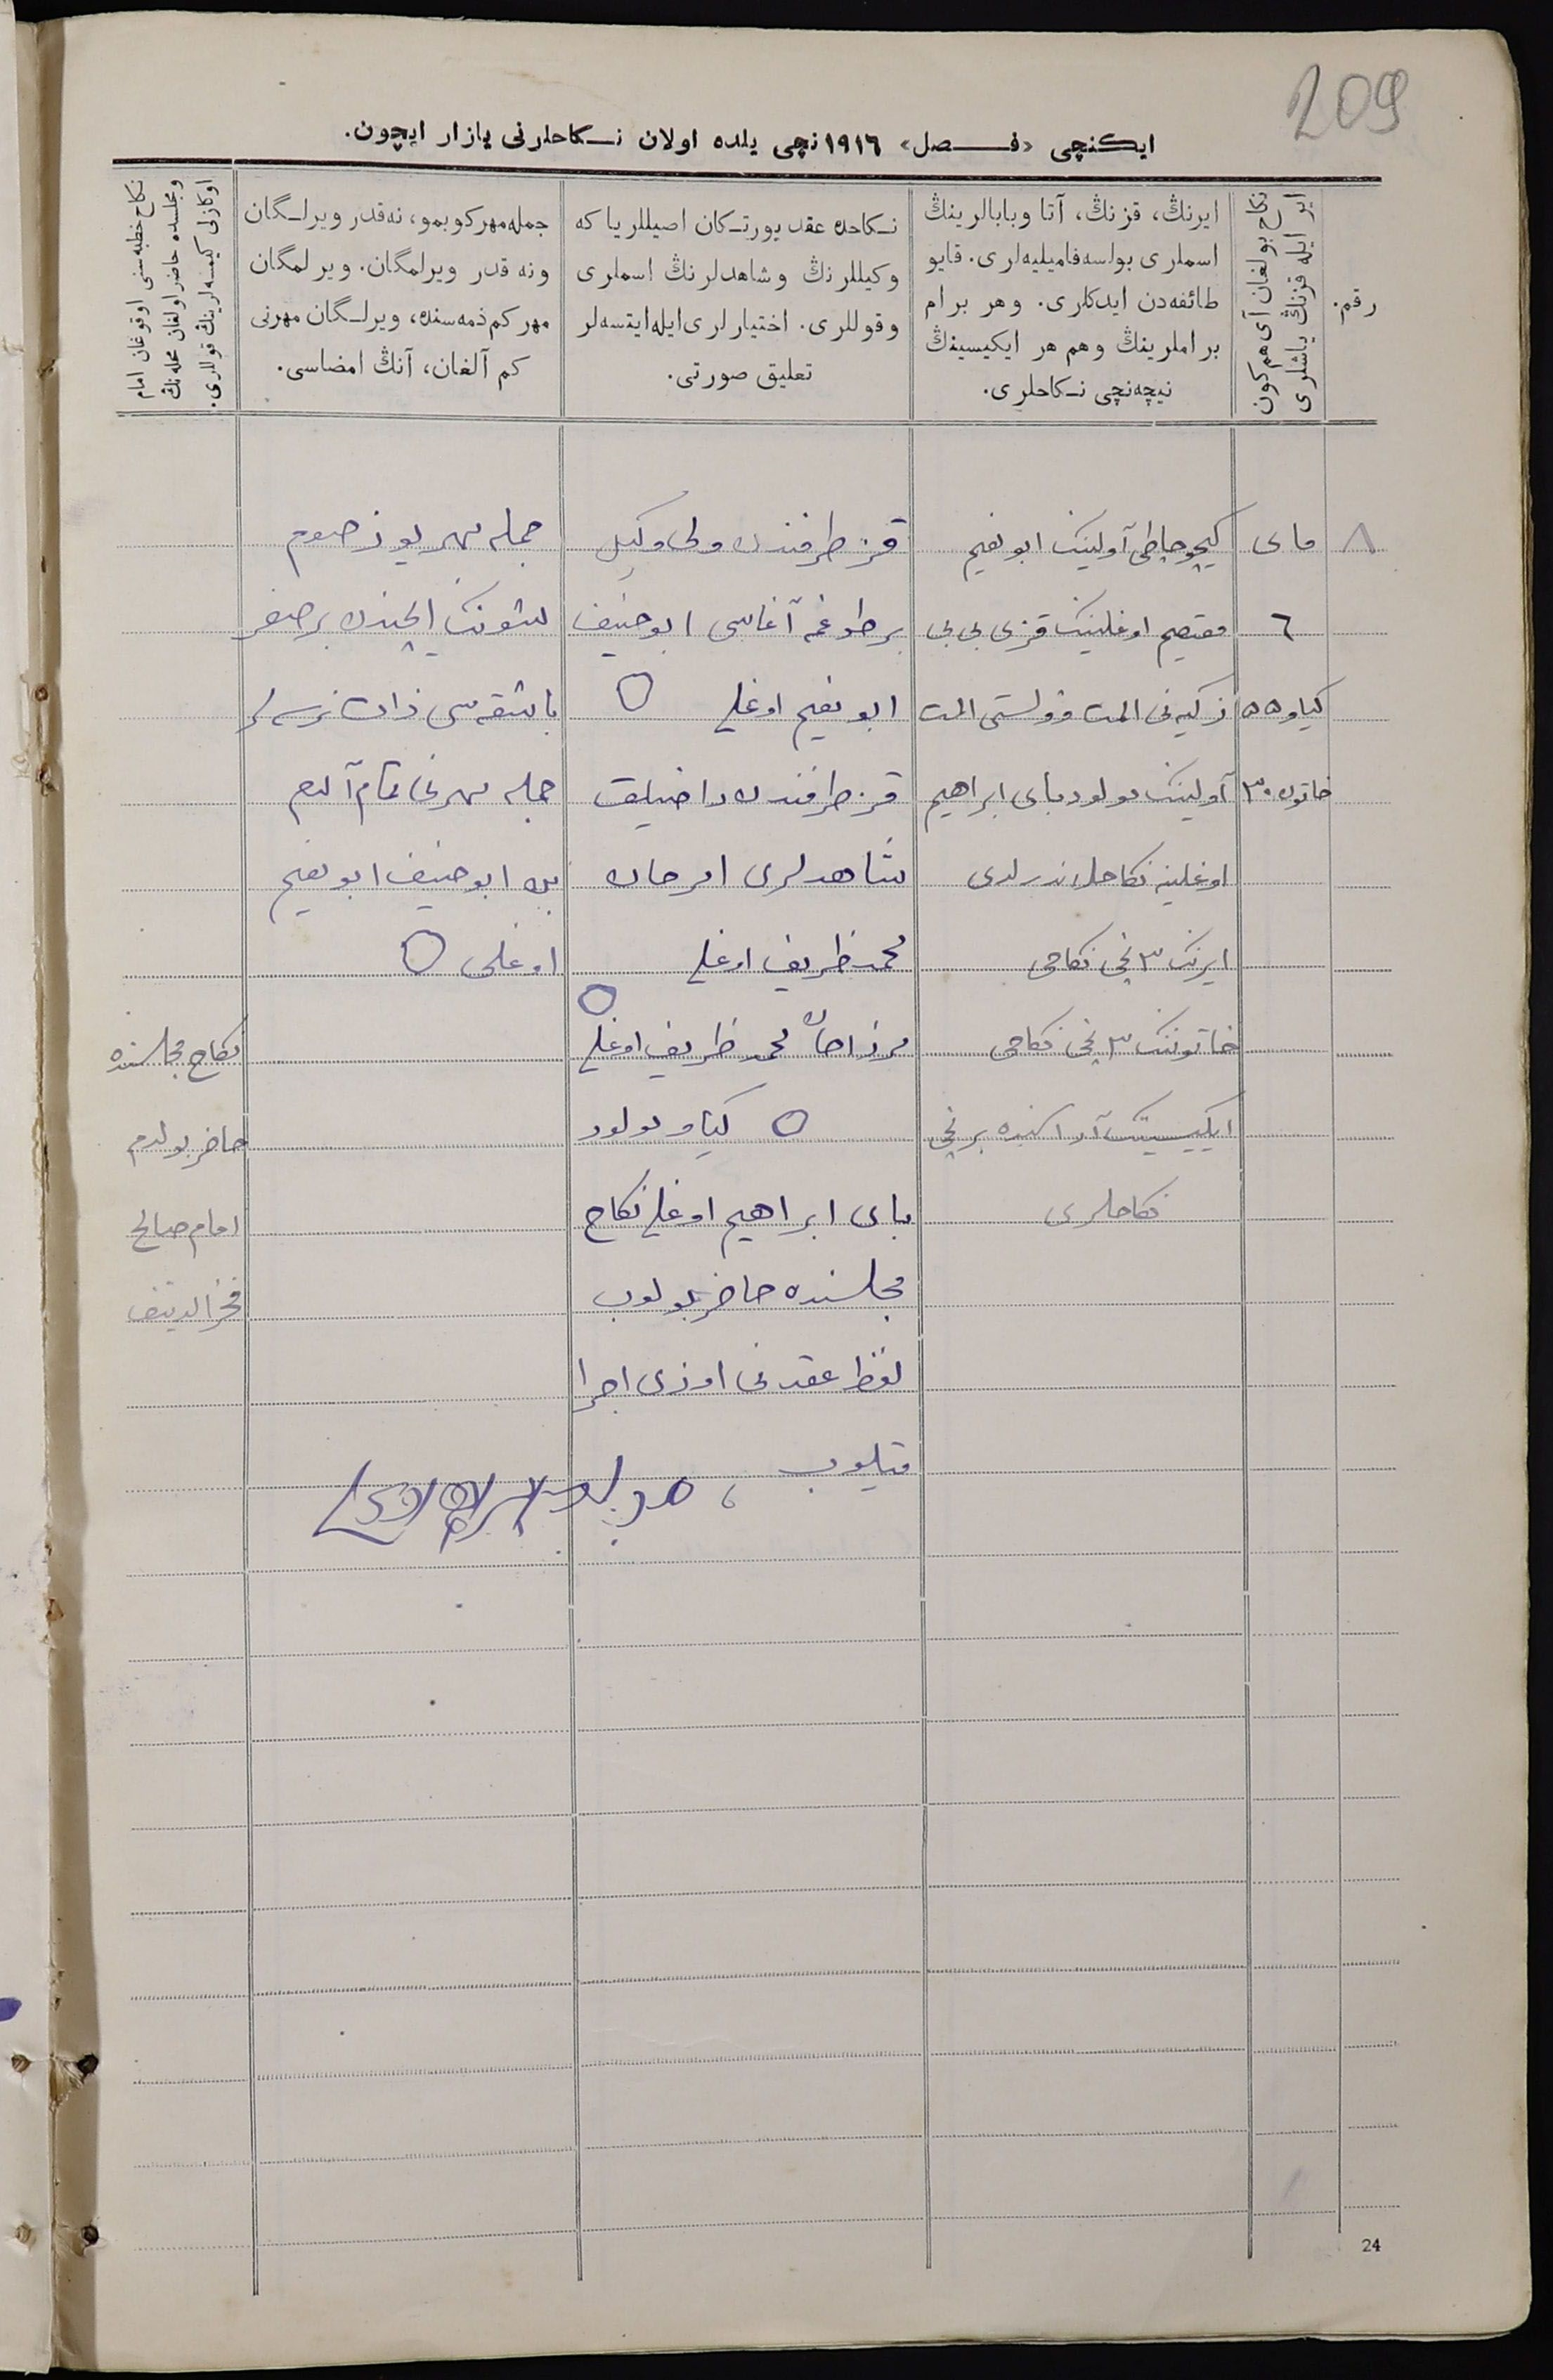 209
ایكنچی «فصل» ١٩١٦ نچی یلده اولان نكاحلرنی یازار ایچون.
رقم.
نكاح بولغان آی هم كون
ایر ایله قزنڭ یاشلری
ایرنڭ، قزنڭ، آتا وبابالرینڭ
اسملری بولسه فامیلیه‌لری. قایو
طائفه‌دن ایدكلری. وهر برام
براملرینڭ وهم هر ایكیسینڭ
نیچه‌نچی نكاحلری.
نكاحده عقد یورتكان اصیللر یا كه
وكیللرنڭ وشاهدلرنڭ اسملری
وقوللری. اختیارلری ایله ایتسه‌لر
تعلیق صورتی.
جمله مهر كوبمو، نه‌قدر ویرلگان
ونه قدر ویرلمگان. ویرلمگان
مهر كم ذمه‌سنده، ویرلگان مهرنی
كم آلغان، آنڭ امضاسی.
نكاح خطبه‌سنی اوقوغان امام
ومجلسده حاضر اولغان محله‌نڭ
اوكازنی كیمسه‌لرینڭ قوللری.
٨
مای
٦
كیاو ٥٥
خاتون ٣٠
آولینك ابونعیم
اوغلینك قزی بی بی
زكیه‌نی
آولینك مولود بای ابراهیم
اوغلینه نكاحلاندرلدی
ایرنك ٣ نچی نكاحی
خاتوننك ٣ نچی نكاحی
ایكیسینك آراسنده برنچی
نكاحلری
قز طرفندن ولی وكیل
برطوغمه آغاسی ابوحنیف
ابونعیم اوغلی
قز طرفندن راضیلق
شاهدلری امرجان
محمدظریف اوغلی
مرزاجان محمدظریف اوغلی
كیاو مولود
بای ابراهیم اوغلی نكاح
مجلسنده حاضر بولوب
لفظ عقدنی اوزی اجرا
قیلوب
جمله مهر یوز صوم
شونك ایچندن بر
باشقه‌سی نرسه‌لر
جمله مهرنی تمام آلدم
بن ابوحنیف ابونعیم
اوغلی
نكاح مجلسنده
حاضر بولدم
امام صالح
فخرالدینف
24